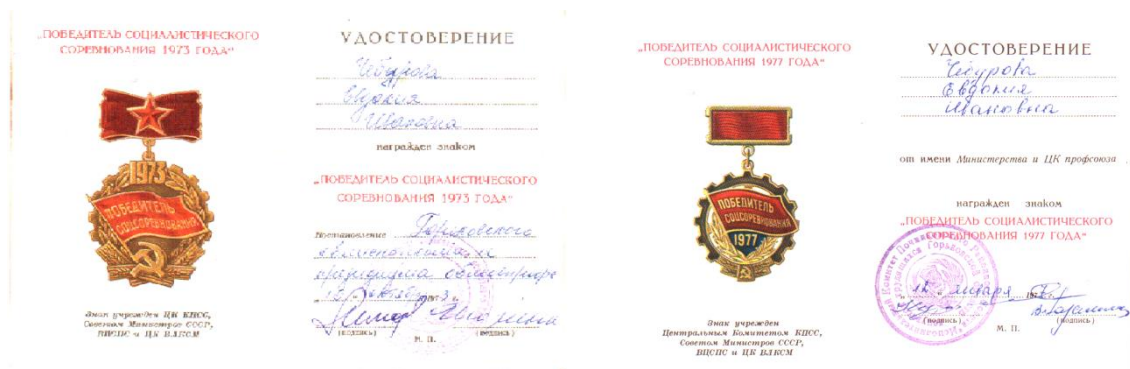 „ПОБЕДИТЕЛЬ СОЦИАЛИСТИЧЕСКОГО
СОРЕВНОВАНИЯ 1973 ГОДА“
1973
ПОБЕДИТЕЛЬ
СОЦСОРЕВНОВАНИЯ
Знак учрежден ЦК КПСС,
Советом Министров СССР,
ВЦСПС и ЦК ВЛКСМ
УДОСТОВЕРЕНИЕ
Чебурова
Евдокия
Ивановна
награжден знаком
„ПОБЕДИТЕЛЬ СОЦИАЛИСТИЧЕСКОГО
СОРЕВНОВАНИЯ 1973 ГОДА“
Постановление Горьковского
президиума
(подпись) (подпись)
М. П.
„ПОБЕДИТЕЛЬ СОЦИАЛИСТИЧЕСКОГО
СОРЕВНОВАНИЯ 1977 ГОДА“
ПОБЕДИТЕЛЬ
СОЦСОРЕВНОВАНИЯ
1977
Знак учрежден
Центральным Комитетом КПСС,
Советом Министров СССР,
ВЦСПС и ЦК ВЛКСМ
УДОСТОВЕРЕНИЕ
Чебурова
Евдокия
Ивановна
от имени Министерства и ЦК профсоюза
награжден знаком
„ПОБЕДИТЕЛЬ СОЦИАЛИСТИЧЕСКОГО
СОРЕВНОВАНИЯ 1977 ГОДА“
„12„ января
(подпись) (подпись)
М. П.